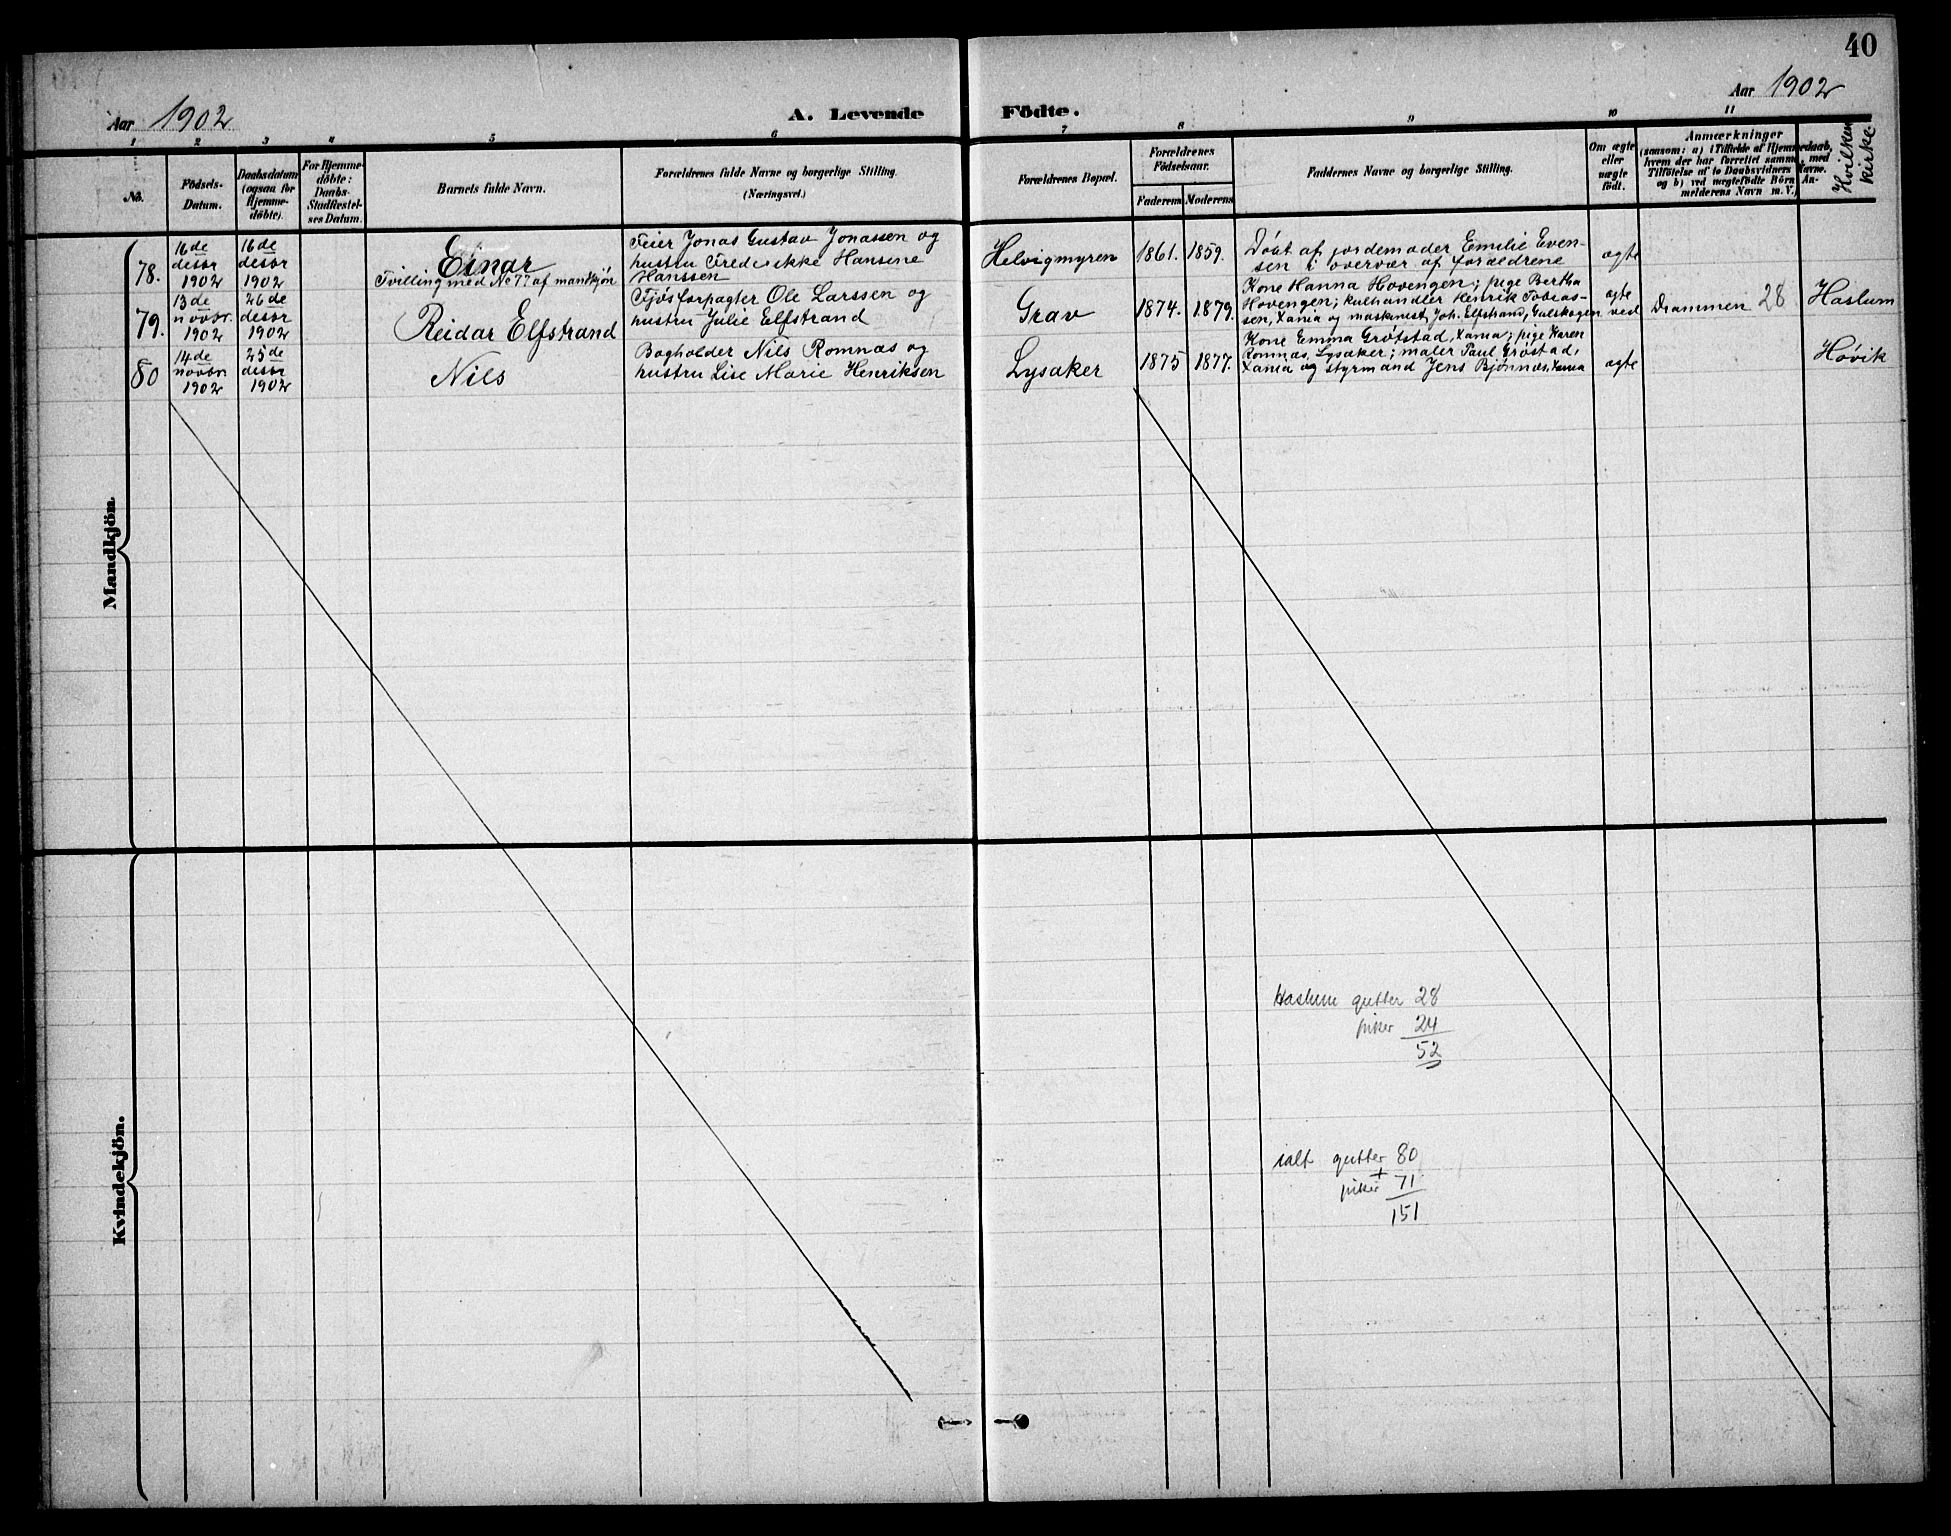 40
Aar 1902
A. Levende Födte.
Aar 1902
1 2 3 4 5 6 7 8 9 10 11
No.
Födsels-
Datum.
Daabsdatum
(ogsaa for
Hjemme-
döbte).
For Hjemme-
döbte:
Daabs-
Stadfæstel-
ses Datum.
Barnets fulde Navn.
Forældrenes fulde Navne og borgerlige Stilling.
(Næringsvei.)
Forældrenes Bopæl.
Forældrenes
Födselsaar.
Faderens Moderens
Faddernes Navne og borgerlige Stilling.
Om ægte
eller
uægte
født.
Anmærkninger
(saasom: a) i Tilfælde af Hjemmedaab,
hvem der har forrettet samme, med
Tilföielse af to Daabsvidners Navne.
og b) ved uægtefödte Börn An-
melderens Navn m. V.)
Hvilken
kirke.
Mandkjön.
78.
16de
desbr
1902
16de
desbr
1902
Einar
Tvilling med No 77 af mandkjøn
Feier Jonas Gustav Jonassen og
hustru Frederikke Hansine
Hanssen
Helvigmyren
1861. 1859.
Døbt af jordemoder Emilie Even-
sen i overvær af forældrene
ægte
79.
13de
novbr.
1902
26de
desbr
1902
Reidar Elfstrand
Fjøsforpagter Ole Larssen og
hustru Julie Elfstrand
Grav
1874. 1879.
Kone Hanna Hovengen; pige Bertha
Hovengen; kulhandler Henrik Tobias-
sen, Xania og maskinist Joh. Elfstrand, Gulskogen
ægte
ved Drammen 28
Haslum
80
14de
novbr.
1902
25de
desbr
1902
Nils
Bogholder Nils Romnæs og
hustru Lise Marie Henriksen
Lysaker
1875 1877.
Kone Emma Grøtstad, Xania; pige Karen
Romnæs, Lysaker; maler Paul Grøstad,
Xania og styrmand Jens Bjønnæs, Xania
ægte
Høvik
Kvindekjön.
Haslum gutter 28
piker 24
52
ialt gutter 80
+
piker 71
151